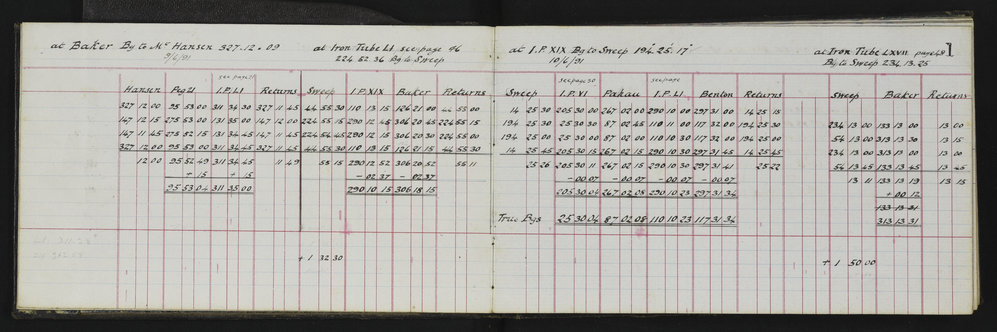 at Baker Bg to Mc Hansen 327.12.09
9/6/91
at Iron Tube LI see page 46
224 52 36 Bg to Sweep
see page 21
Hansen Peg 21 I.P. LI Returns Sweep I.P. XIX Baker Returns
327 12 00 95 53 00 311 34 30 327 11 45 44 55 30 110 13 15 126 21 00 44 55 00
147 12 15 275 53 00 131 35 00 147 12 00 224 55 15 290 12 45 306 20 45 224 55 15
147 11 45 275 52 15 131 34 45 147 11 45 224 54 45 290 12 15 306 20 30 224 55 00
327 12 00 95 53 00 311 34 45 327 11 45 44 55 30 110 13 15 126 21 15 44 55 30
12 00 95 52 49 311 34 45 11 49 55 15 290 12 52 306 20 52 55 11
+ 15 + 15 - 02 37 - 02 37
95 53 04 311 35 00 290 10 15 306 18 15
+ 1 32 30
at I.P. XIX Bg to Sweep 194.25.17
10/6/91
at Iron Tube LXVII page 49
Bg to Sweep 234.13.25
1
see page 50 see page
Sweep I.P. VI Pakau I.P. LI Benton Returns Sweep Baker Returns
14 25 30 205 30 00 267 02 00 290 10 00 297 31 00 14 25 15
194 25 30 25 30 30 87 02 45 110 11 00 117 32 00 194 25 30 234 13 00 133 13 00 13 00
194 25 00 25 30 00 87 02 00 110 10 30 117 32 00 194 25 00 54 13 00 313 13 30 13 15
14 25 45 205 30 15 267 02 15 290 10 30 297 31 45 14 25 45 234 13 00 313 13 00 13 00
25 26 205 30 11 267 02 15 290 10 30 297 31 41 25 22 54 13 45 133 13 45 13 45
- 00 07 - 00 07 - 00 07 - 00 07 13 11 133 13 19 13 15
205 30 04 267 02 08 290 10 23 297 31 34 + 00 12
133 13 31
True Bgs 25 30 04 87 02 08 110 10 23 117 31 34 313 13 31
+ 1 50 00